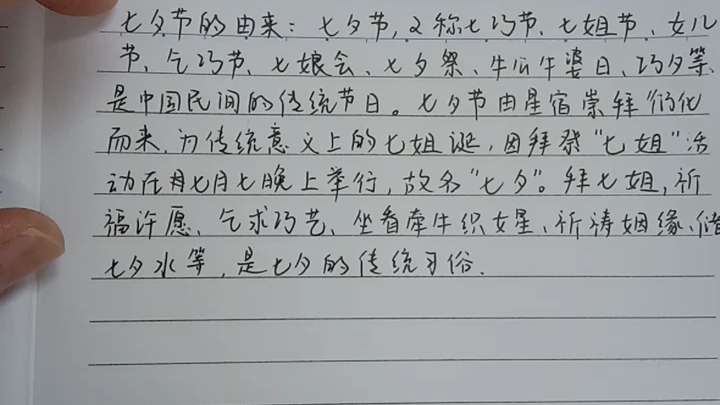 七夕节的由来：七夕节，又称七巧节、七姐节、女儿
节、乞巧节、七娘会、七夕祭、牛公牛婆日、巧夕等，
是中国民间的传统节日。七夕节由星宿崇拜衍化
而来，为传统意义上的七姐诞，因拜祭“七姐”活
动在月七月七晚上举行，故名“七夕”。拜七姐，祈
福许愿、乞求巧艺、坐看牵牛织女星、祈祷姻缘、储
七夕水等，是七夕的传统习俗．